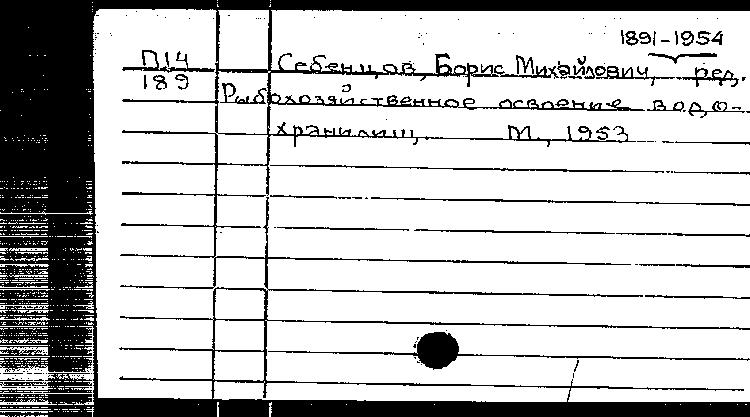 1891-1954
П14 Себенцов, Борис Михайлович, ред.
189 Рыбохозяйственное освоение водо-
хранилищ, М., 1953